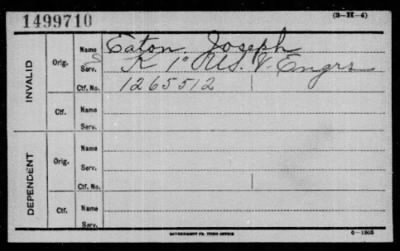 1499710
(3-H-4)
INVALID
Orig. Name Eaton, Joseph
Serv. K 1" U.S. V. Engrs
Ctf. No. 1265512
Ctf. Name
Serv.
DEPENDENT
Orig. Name
Serv.
Ctf. No.
Ctf. Name
Serv.
GOVERNMENT PR. OFFICE
6-1903